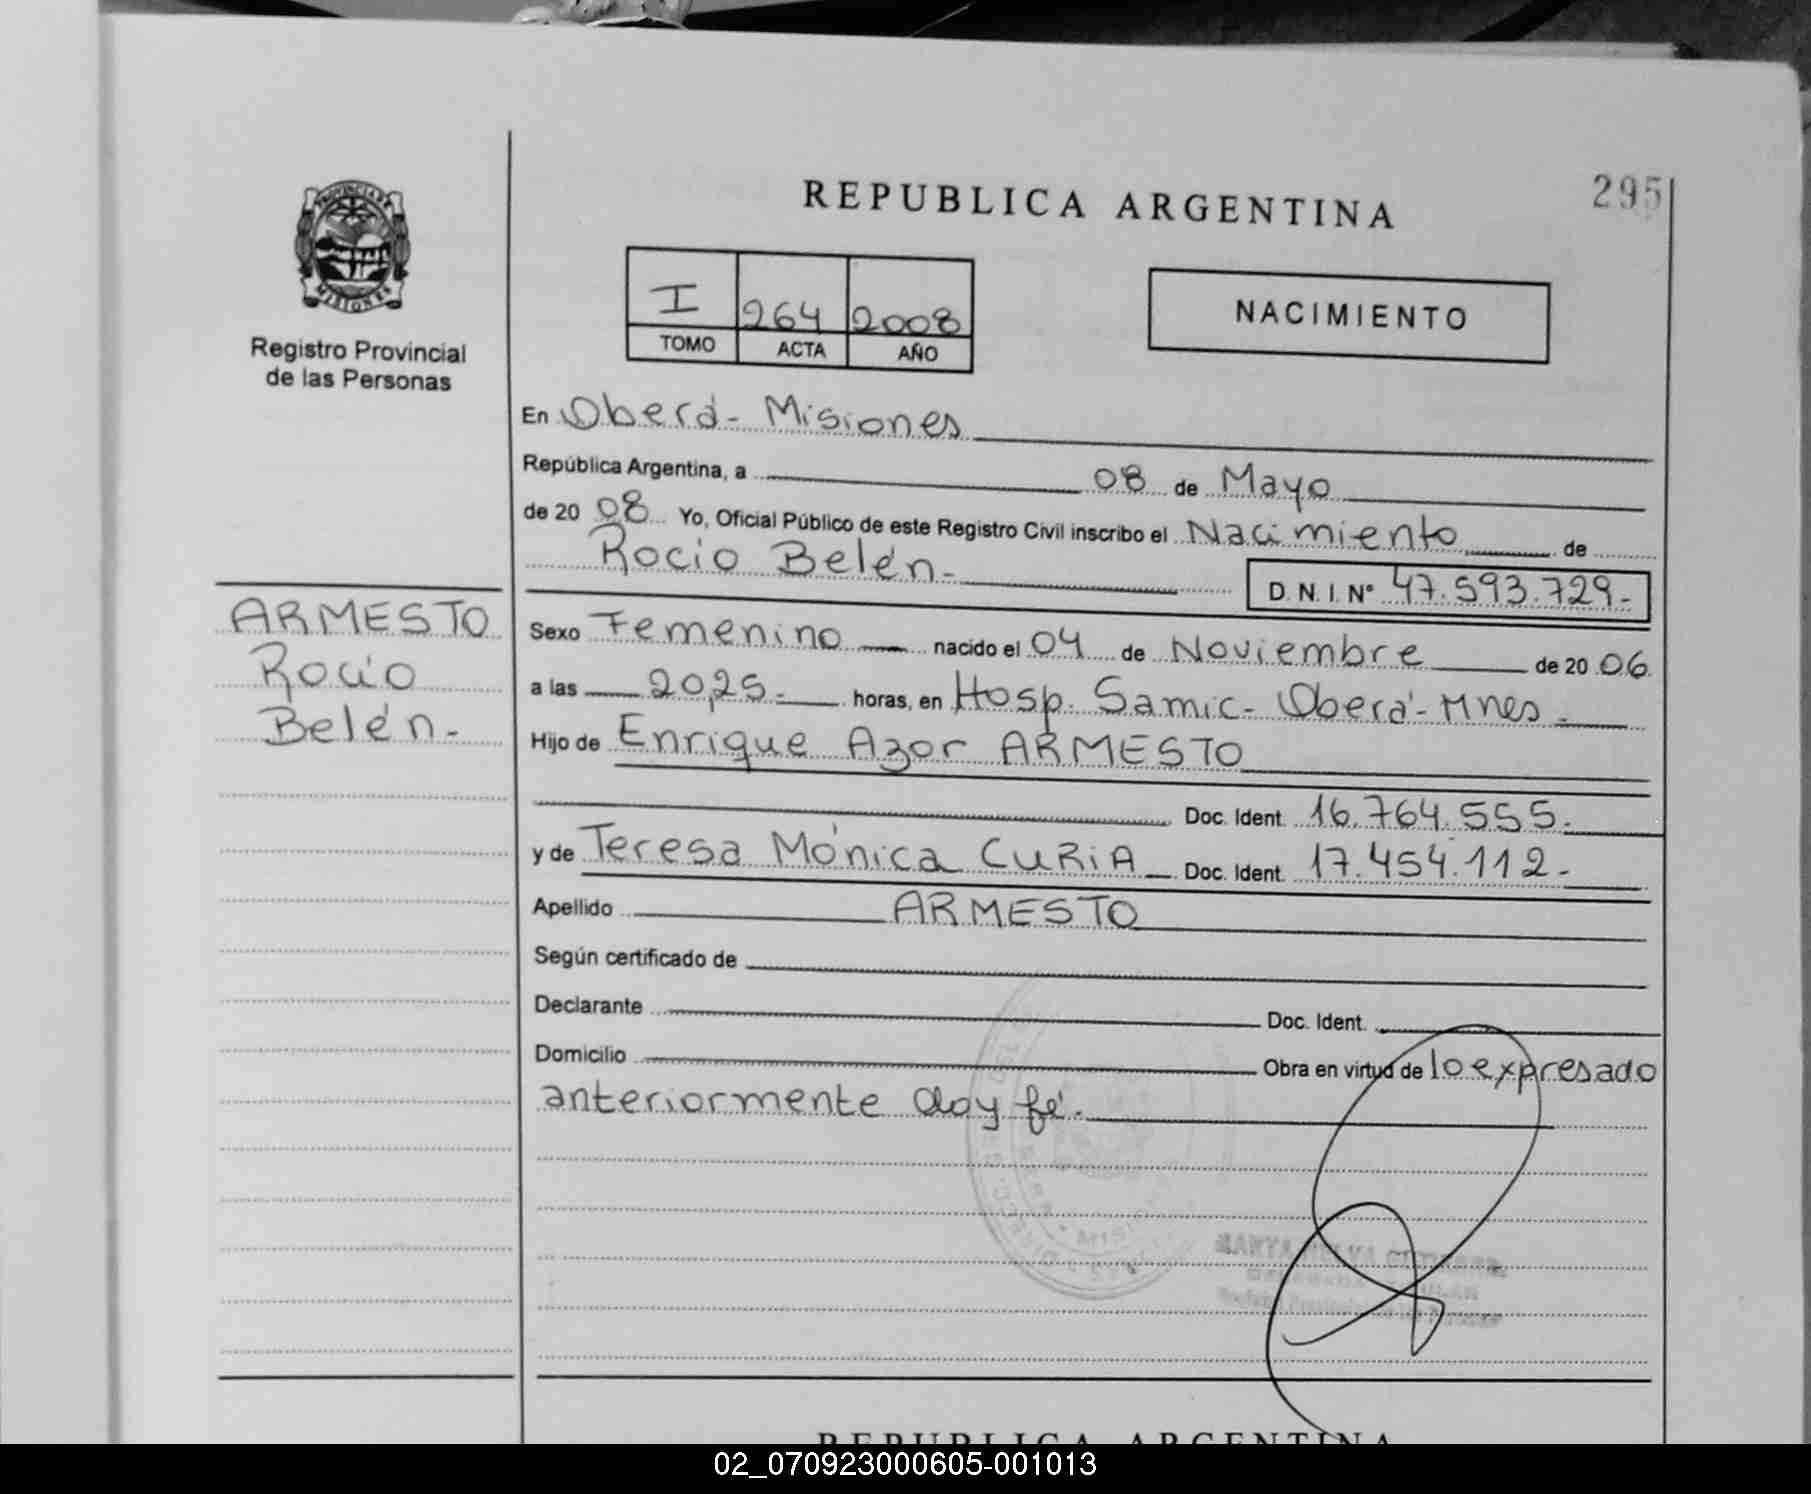 295
REPUBLICA ARGENTINA
PROVINCIA DE
MISIONES
Registro Provincial
de las Personas
I 264 2008
TOMO ACTA AÑO
NACIMIENTO
En Oberá- Misiones
República Argentina, a 08 de Mayo
de 20 08 Yo, Oficial Público de este Registro Civil inscribo el Nacimiento de
Rocío Belén-
D. N. I. N° 47.593.729-
ARMESTO
Rocío
Belén-
Sexo Femenino nacido el 04 de Noviembre de 20 06
a las 20,25.- horas, en Hosp. Samic- Oberá-Mnes-
Hijo de Enrique Azor ARMESTO
Doc. Ident. 16.764.555.-
y de Teresa Mónica CURIA Doc. Ident. 17.454.112-
Apellido ARMESTO
Según certificado de
Declarante Doc. Ident.
Domicilio Obra en virtud de lo expresado
anteriormente doy fé.-
REPUBLICA ARGENTINA
02_070923000605-001013